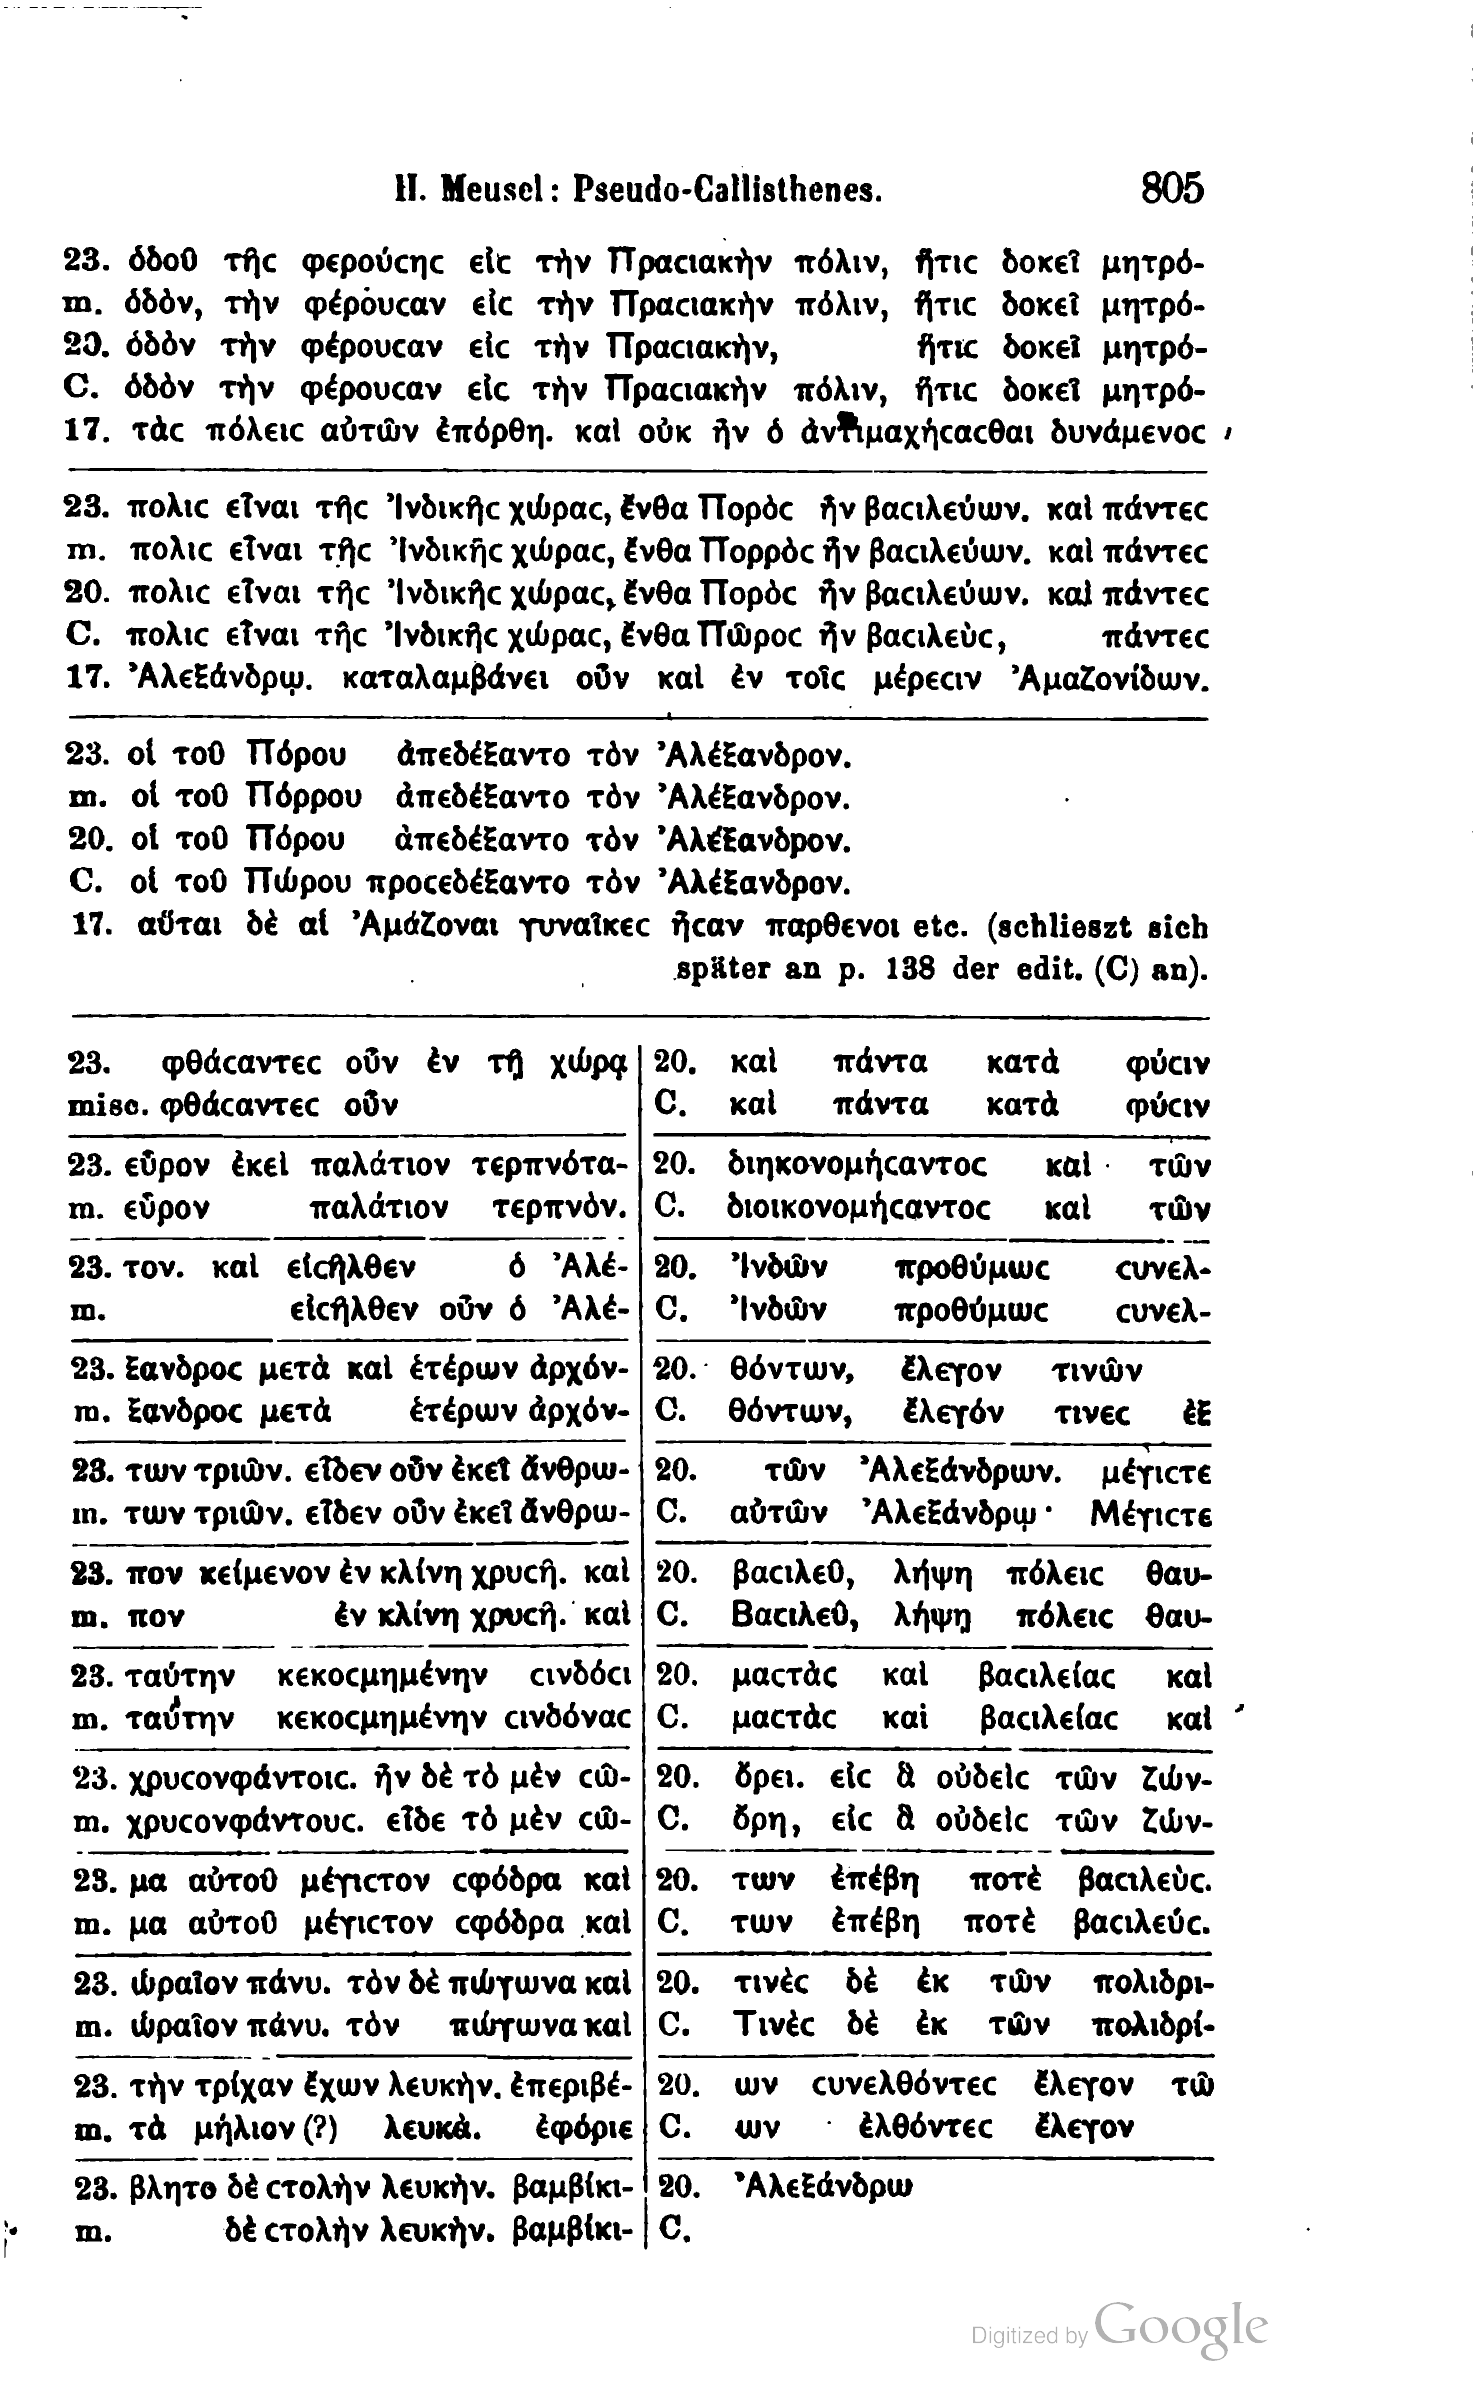 H. Meusel: Pseudo-Callisthenes. 805
23. ὁδοῦ τῆϲ φερούϲηϲ εἰϲ τὴν Πραϲιακὴν πόλιν, ἥτιϲ δοκεῖ μητρό-
m. ὁδὸν, τὴν φέρουϲαν εἰϲ τὴν Πραϲιακὴν πόλιν, ἥτιϲ δοκεῖ μητρό-
20. ὁδὸν τὴν φέρουϲαν εἰϲ τὴν Πραϲιακὴν, ἥτιϲ δοκεῖ μητρό-
C. ὁδὸν τὴν φέρουϲαν εἰϲ τὴν Πραϲιακὴν πόλιν, ἥτιϲ δοκεῖ μητρό-
17. τὰϲ πόλειϲ αὐτῶν ἐπόρθη. καὶ οὐκ ἦν ὁ ἀντιμαχήϲαϲθαι δυνάμενοϲ
23. πολιϲ εἶναι τῆϲ Ἰνδικῆϲ χώραϲ, ἔνθα Πορὸϲ ἦν βαϲιλεύων. καὶ πάντεϲ
m. πολιϲ εἶναι τῆϲ Ἰνδικῆϲ χώραϲ, ἔνθα Πορρὸϲ ἦν βαϲιλεύων. καὶ πάντεϲ
20. πολιϲ εἶναι τῆϲ Ἰνδικῆϲ χώραϲ, ἔνθα Πορὸϲ ἦν βαϲιλεύων. καὶ πάντεϲ
C. πολιϲ εἶναι τῆϲ Ἰνδικῆϲ χώραϲ, ἔνθα Πῶροϲ ἦν βαϲιλεὺϲ, πάντεϲ
17. Ἀλεξάνδρῳ. καταλαμβάνει οὖν καὶ ἐν τοῖϲ μέρεϲιν Ἀμαζονίδων.
23. οἱ τοῦ Πόρου ἀπεδέξαντο τὸν Ἀλέξανδρον.
m. οἱ τοῦ Πόρρου ἀπεδέξαντο τὸν Ἀλέξανδρον.
20. οἱ τοῦ Πόρου ἀπεδέξαντο τὸν Ἀλέξανδρον.
C. οἱ τοῦ Πώρου προϲεδέξαντο τὸν Ἀλέξανδρον.
17. αὗται δὲ αἱ Ἀμάζοναι γυναῖκεϲ ἦϲαν παρθενοι etc. (schlieszt sich
später an p. 138 der edit. (C) an).
23. φθάϲαντεϲ οὖν ἐν τῇ χώρᾳ
misc. φθάϲαντεϲ οὖν
23. εὗρον ἐκεὶ παλάτιον τερπνότα-
m. εὗρον παλάτιον τερπνὸν.
23. τον. καὶ εἰϲῆλθεν ὁ Ἀλέ-
m. εἰϲῆλθεν οὖν ὁ Ἀλέ-
23. ξανδροϲ μετὰ καὶ ἑτέρων ἀρχόν-
m. ξανδροϲ μετὰ ἑτέρων ἀρχόν-
23. των τριῶν. εἶδεν οὖν ἐκεῖ ἄνθρω-
m. των τριῶν. εἶδεν οὖν ἐκεῖ ἄνθρω-
23. πον κείμενον ἐν κλίνη χρυϲῆ. καὶ
m. πον ἐν κλίνη χρυϲῆ. καὶ
23. ταύτην κεκοϲμημένην ϲινδόϲι
m. ταύτην κεκοϲμημένην ϲινδόναϲ
23. χρυϲονφάντοιϲ. ἦν δὲ τὸ μὲν ϲῶ-
m. χρυϲονφάντουϲ. εἶδε τὸ μὲν ϲῶ-
23. μα αὐτοῦ μέγιϲτον ϲφόδρα καὶ
m. μα αὐτοῦ μέγιϲτον ϲφόδρα καὶ
23. ὡραῖον πάνυ. τὸν δὲ πώγωνα καὶ
m. ὡραῖον πάνυ. τὸν πώγωνα καὶ
23. τὴν τρίχαν ἔχων λευκὴν. ἐπεριβέ-
m. τὰ μήλιον (?) λευκὰ. ἐφόριε
23. βλητο δὲ ϲτολὴν λευκὴν. βαμβίκι-
m. δὲ ϲτολὴν λευκὴν. βαμβίκι-
20. καὶ πάντα κατὰ φύϲιν
C. καὶ πάντα κατὰ φύϲιν
20. διηκονομήϲαντοϲ καὶ τῶν
C. διοικονομήϲαντοϲ καὶ τῶν
20. Ἰνδῶν προθύμωϲ ϲυνελ-
C. Ἰνδῶν προθύμωϲ ϲυνελ-
20. θόντων, ἔλεγον τινῶν
C. θόντων, ἔλεγόν τινεϲ ἐξ
20. τῶν Ἀλεξάνδρων. μέγιϲτε
C. αὐτῶν Ἀλεξάνδρῳ· Μέγιϲτε
20. βαϲιλεῦ, λήψη πόλειϲ θαυ-
C. Βαϲιλεῦ, λήψῃ πόλειϲ θαυ-
20. μαϲτὰϲ καὶ βαϲιλείαϲ καὶ
C. μαϲτὰϲ καὶ βαϲιλείαϲ καὶ
20. ὄρει. εἰϲ ἃ οὐδεὶϲ τῶν ζών-
C. ὄρη, εἰϲ ἃ οὐδεὶϲ τῶν ζών-
20. των ἐπέβη ποτὲ βαϲιλεὺϲ.
C. των ἐπέβη ποτὲ βαϲιλεύϲ.
20. τινὲϲ δὲ ἐκ τῶν πολιδρι-
C. Τινὲϲ δὲ ἐκ τῶν πολιδρί-
20. ων ϲυνελθόντεϲ ἔλεγον τῶ
C. ων ἐλθόντεϲ ἔλεγον
20. Ἀλεξάνδρω
C.
Digitized by Google